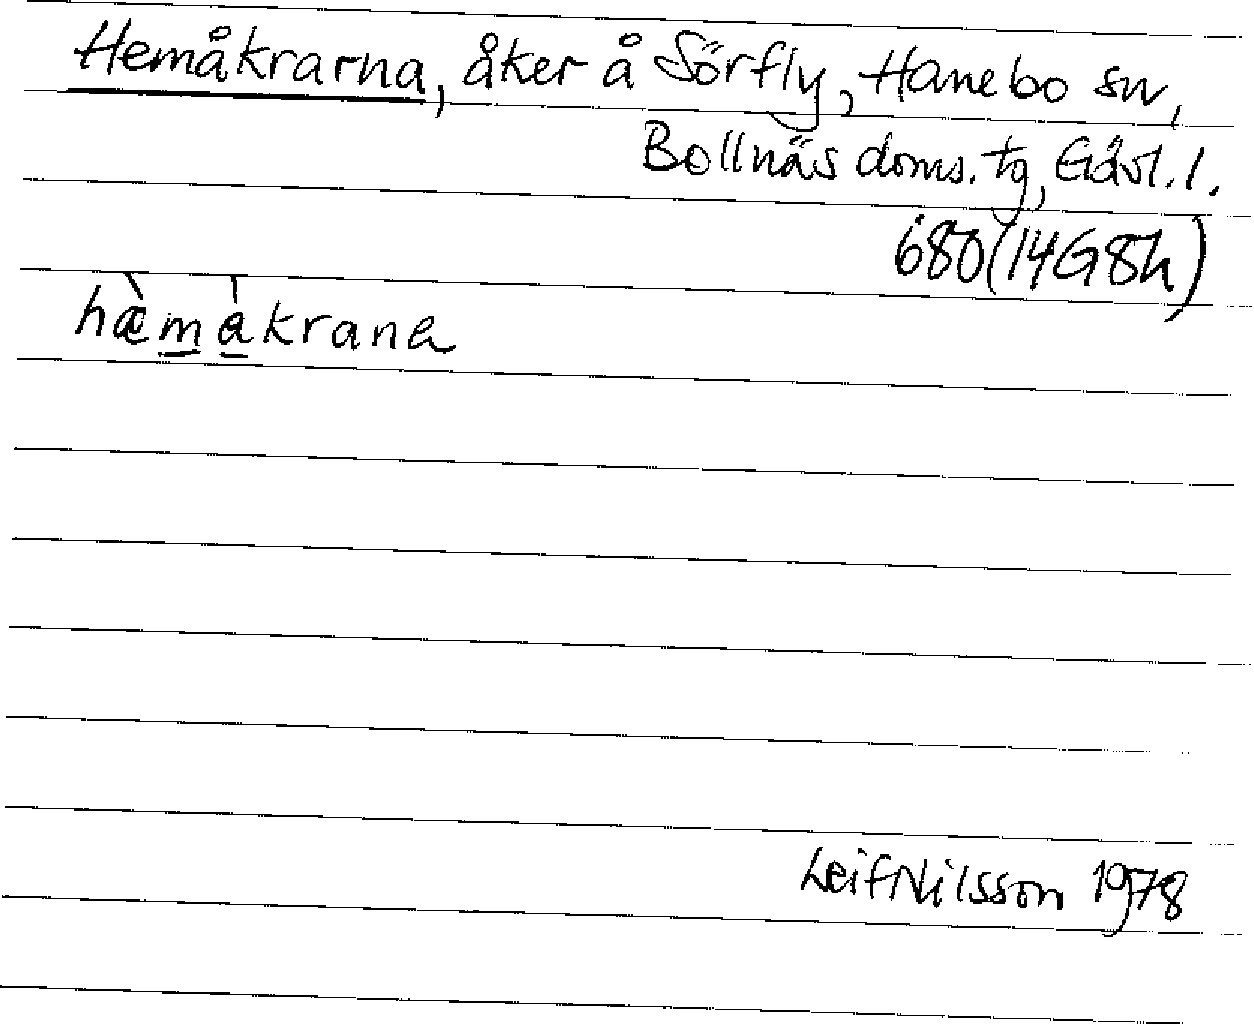 Hemåkrarna, åker å Sörfly, Hanebo sn,
Bollnäs doms. tg, Gävl. l.
680 (14G8h)
hæ̀måkrana
Leif Nilsson 1978